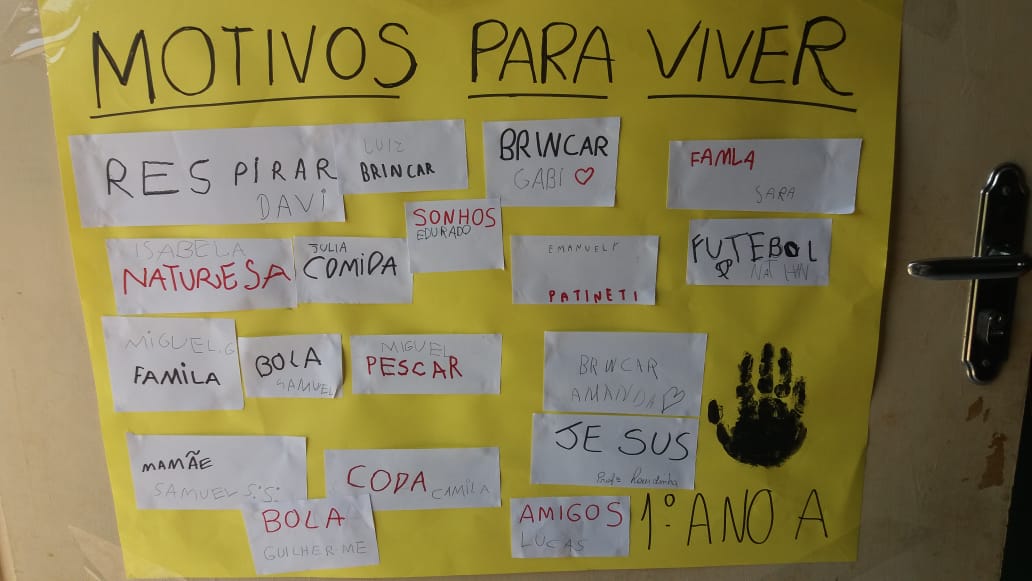 MOTIVOS PARA VIVER
RESPIRAR
DAVI
LUIZ
BRINCAR
BRINCAR
GABI
FAMLA
SARA
ISABELA
NATURESA
JULIA
COMIDA
SONHOS
EDURADO
EMANUELY
PATINETI
FUTEBOL
NATHAN
MIGUEL.G
FAMILA
BOLA
SAMUEL
MIGUEL
PESCAR
BRINCAR
AMANDA
MAMÃE
SAMUEL S.S.
CODA
CAMILA
JESUS
Profª
BOLA
GUILHERME
AMIGOS
LUCAS
1º ANO A